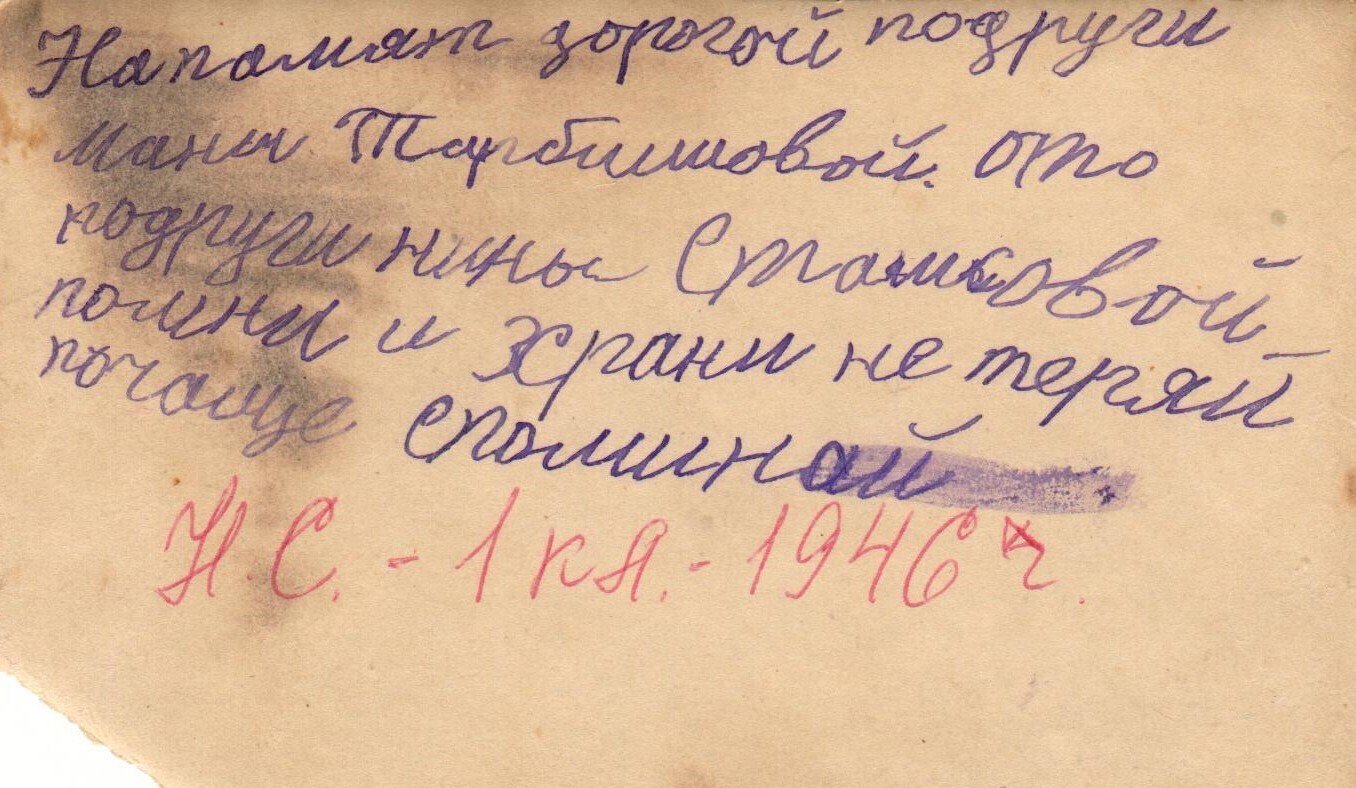 Напамят дорогой подруги
Мани Тарбишовой. ото
подруги нины Сташовой
помни и храни не теряй
почаще споминай
Н.С. - 1 кл. - 1946 г.